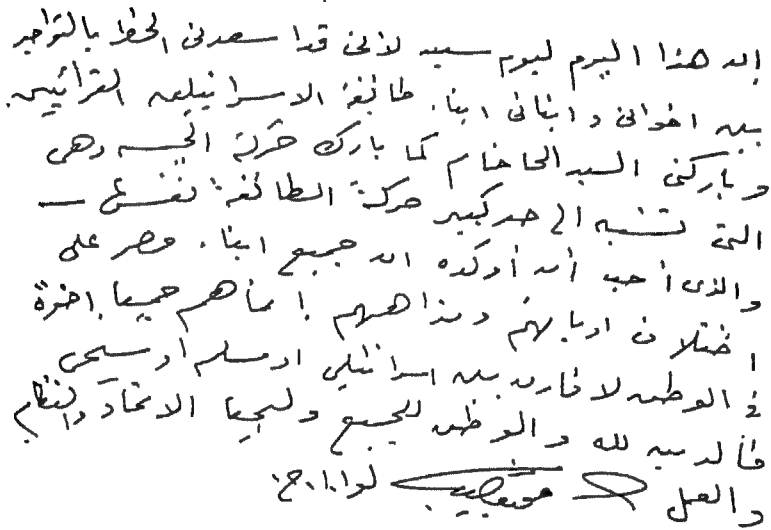 إن هذا اليوم ليوم سعيد لأنى قد أسعدنى الحظ بالتواجد
بين اخوانى وابنائى ابناء طائفة الاسرائيليين القرائيين
وباركنى السيد الحاخام كما بارك حركة الجيش وهى
التى تشبه الى حد كبير حركة الطائفة نفسها ـ
والذى أحب أن أؤكده ان جميع ابناء مصر على
اختلاف اديانهم ومذاهبهم إنما هم جميعا إخوة
فى الوطن لا فارق بين اسرائيلى او مسلم أو مسيحى
فالدين لله والوطن للجميع وليحيا الاتحاد والنظام
والعمل محمد نجيب لواء ا. ح.